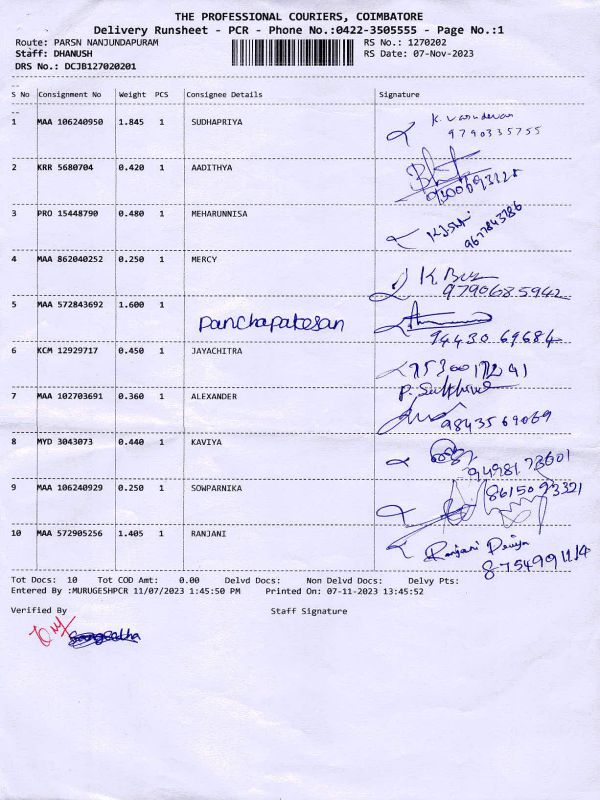 THE PROFESSIONAL COURIERS, COIMBATORE
Delivery Runsheet - PCR - Phone No.:0422-3505555 - Page No.:1
Route: PARSN NANJUNDAPURAM RS No.: 1270202
Staff: DHANUSH RS Date: 07-Nov-2023
DRS No.: DCJB127020201
S No Consignment No Weight PCS Consignee Details Signature
1 MAA 106240950 1.845 1 SUDHAPRIYA K. Vasudevan
9790335755
2 KRR 5680704 0.420 1 AADITHYA
3 PRO 15448790 0.480 1 MEHARUNNISA
9677843786
4 MAA 862040252 0.250 1 MERCY
9790685942
5 MAA 572843692 1.600 1
Panchapakesan
94430 69684
6 KCM 12929717 0.450 1 JAYACHITRA
7530017291
7 MAA 102703691 0.360 1 ALEXANDER
9843569069
8 MYD 3043073 0.440 1 KAVIYA
9498173601
9 MAA 106240929 0.250 1 SOWPARNIKA 8615093321
10 MAA 572905256 1.405 1 RANJANI
Ranjani Deviya
8754991114
Tot Docs: 10 Tot COD Amt: 0.00 Delvd Docs: Non Delvd Docs: Delvy Pts:
Entered By :MURUGESHPCR 11/07/2023 1:45:50 PM Printed On: 07-11-2023 13:45:52
Verified By Staff Signature